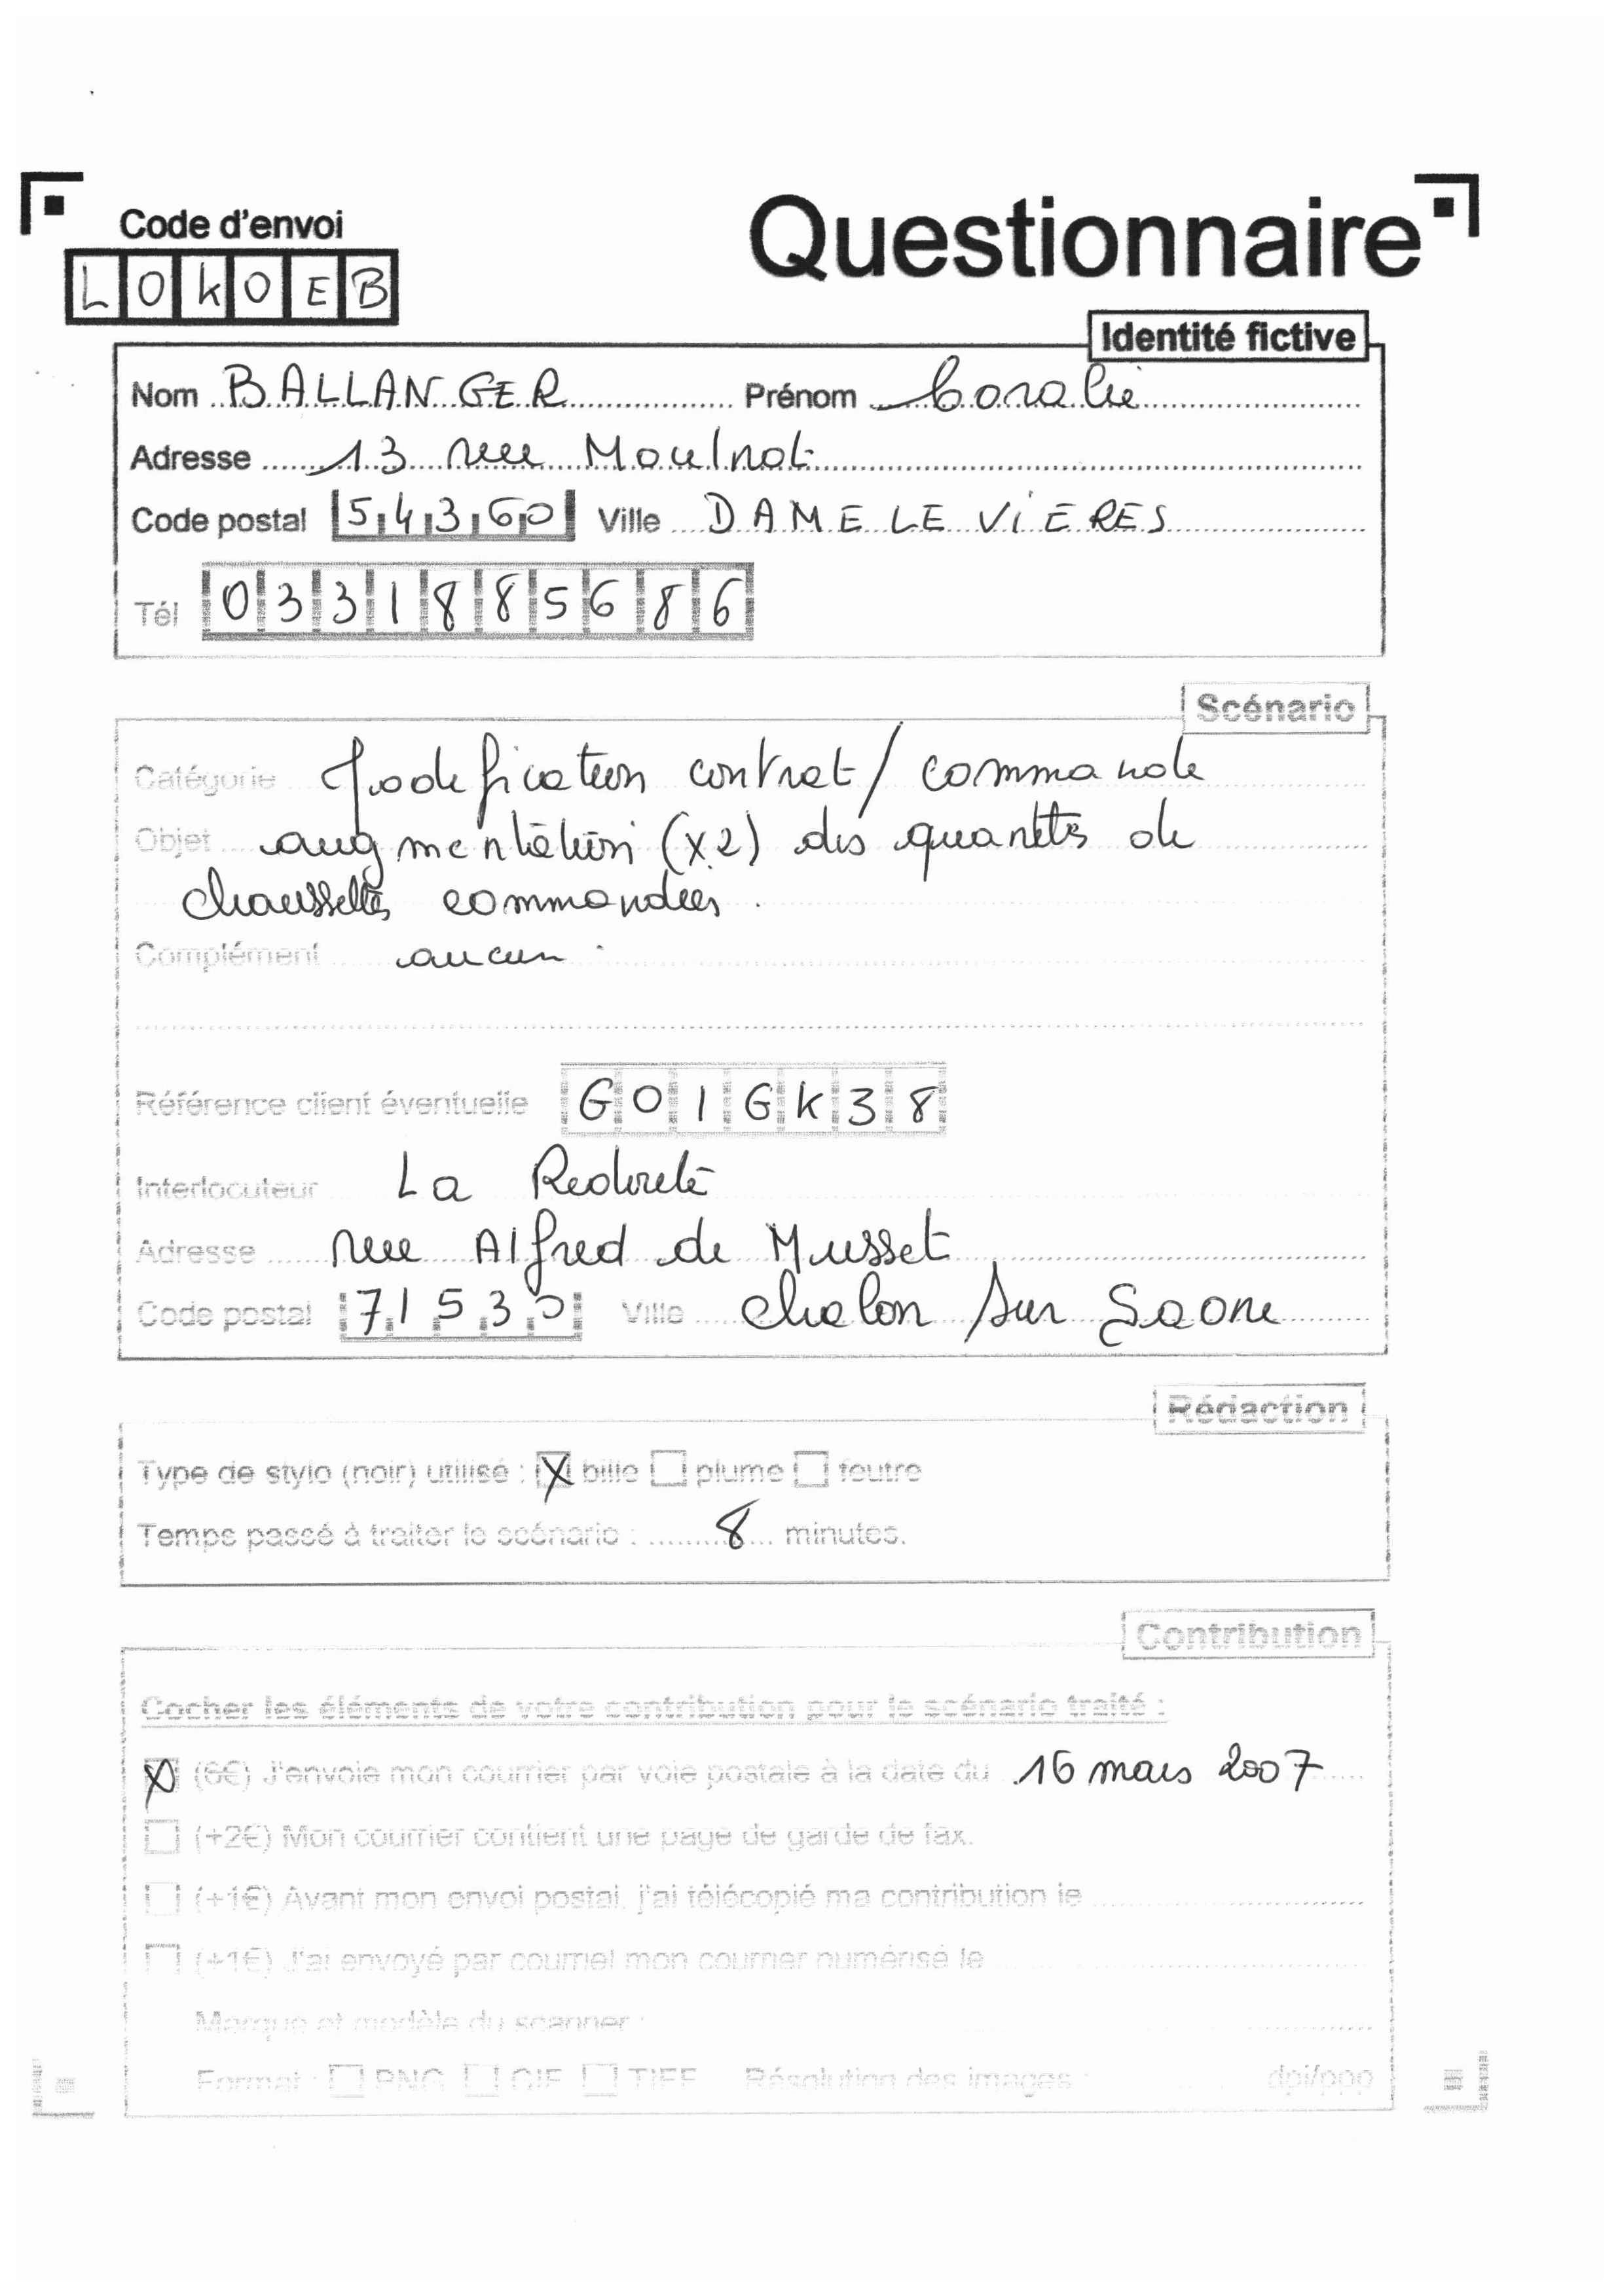 Code d'envoi
Questionnaire
LOKOEB
Identité fictive
Nom BALLANGER Prénom Coralie
Adresse 13 rue Moulnot
Code postal 54360 Ville DAMELEVIERES
Tél 0331885686
Scénario
Catégorie Modification contrat/ commande
Objet augmentation (x2) des quantités de
chaussettes commandées.
Complément aucun.
Référence client éventuelle G01GK38
Interlocuteur La Redoute
Adresse rue Alfred de Musset
Code postal 71530 Ville Chalon sur Saone
Rédaction
Type de stylo (noir) utilisé : X bille plume feutre
Temps passé à traiter le scénario : 8 minutes.
Contribution
Cocher les éléments de votre contribution pour le scénario traité :
X (6€) J'envoie mon courrier par voie postale à la date du 16 mars 2007
(+2€) Mon courrier contient une page de garde de fax.
(+1€) Avant mon envoi postal, j'ai télécopié ma contribution le
(+1€) J'ai envoyé par courriel mon courrier numérisé le
Marque et modèle du scanner :
Format : PNG GIF TIFF Résolution des images : dpi/ppp